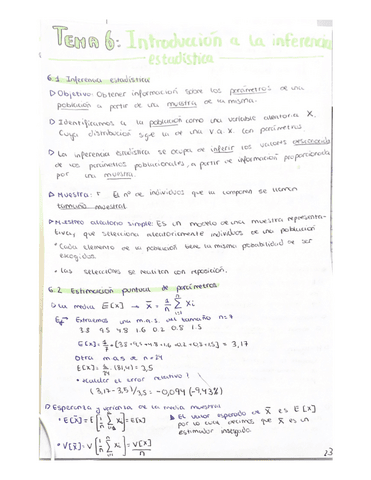 TEMA 6: Introducción a la inferencia
estadística
6.1 Inferencia estadística
Objetivo: Obtener información sobre los parámetros de una
población a partir de una muestra de la misma.
Identificamos a la población como una variable aleatoria X.
Cuya distribución sigue la de una v.a X. con parámetros
La inferencia estadística se ocupa de inferir los valores desconocidos
de los parámetros poblacionales, a partir de información proporcionada
por una muestra.
Muestra: El nº de individuos que la componen se llaman
tamaño muestral
Muestreo aleatorio simple: Es un modelo de una muestra representa-
tiva, que selecciona aleatoriamente individuos de una población
• Cada elemento de la población tiene la misma probabilidad de ser
escogidos.
• Las selecciones se realizan con reposición.
6.2 Estimación puntual de parámetros:
La media E[X] → X̄ = 1/n Σ Xi
Extraemos una m.a.s. del tamaño n=7
3.3 9.5 4.8 1.6 0.2 0.8 1.5
E[X] = 1/7 = 3,17
Otra m.a.s de n=24
E[X] = 1/24 (81,4) = 3,5
• calcular el error relativo
(3,17-3,5)/3,5 = -0,094 (-9,43%)
Esperanza y varianza de la media muestral
• E[X̄] = E[1/n Σ Xi] = E[X]
El valor esperado de X̄ es E[X]
por lo cual decimos que X̄ es un
estimador insesgado
• V[X̄] = V[1/n Σ Xi] = V[X]/n